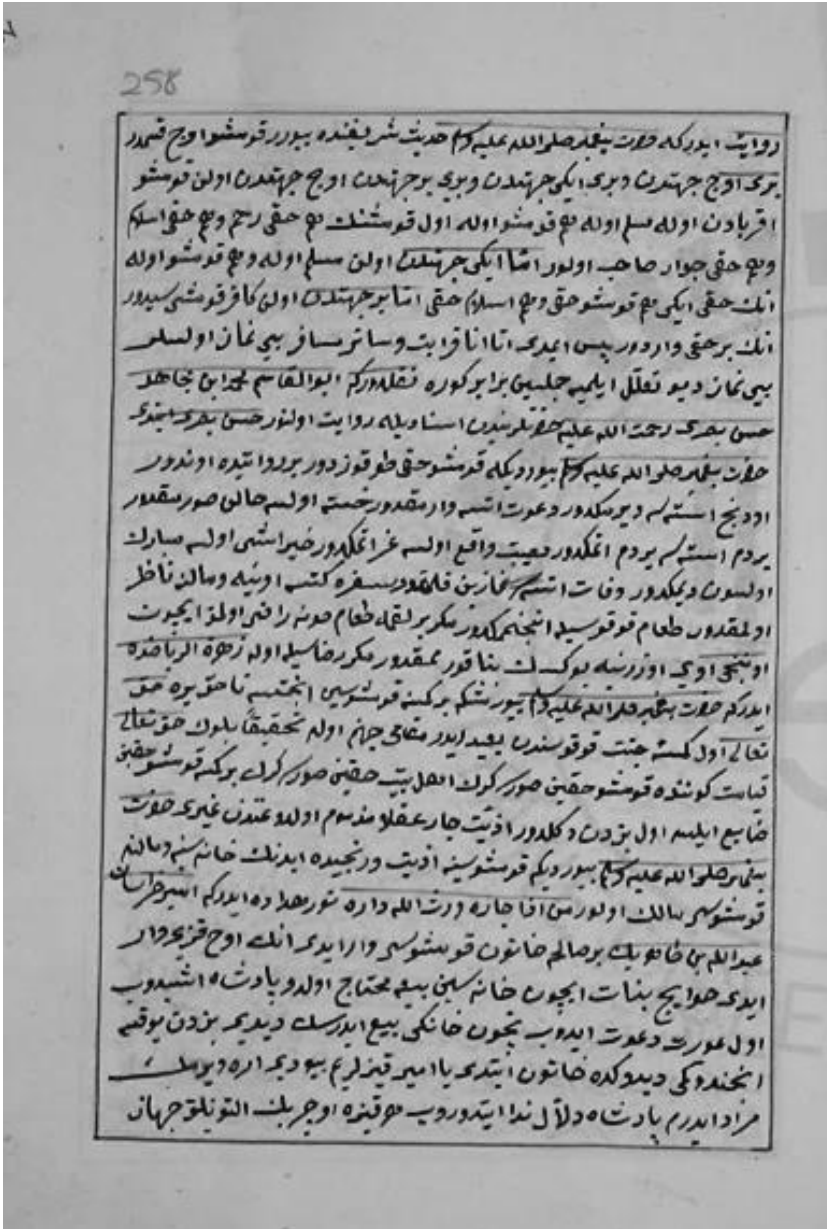 258
روايت ايدر كه حضرت پيغمبر صلى الله عليه وسلم حديث شريفنده بيورر قوشو اوچ قسمدر
برى اوچ جهتدن وبرى ايكى جهتدن وبرى بر جهتدن اوچ جهتدن اولن قومشو
اقربادن اوله مسلم اوله هم قومشو اوله اول قومشنك هم حقى رحم وهم حقى اسلام
وهم حقى جوار صاحب اولور امّا ايكى جهتدن اولن مسلم اوله وهم قومشو اوله
انك حقى ايكى هم قومشو حقى وهم اسلام حقى امّا بر جهتدن اولن كافر قومشى سيدور
انك بر حقى واردور پس ايمدى اتا انا قرابت وسائر مسافر بيى نماز اولسلر
بيى نماز ديو تعلّل ايلميه جلبين برابر كوره نقلدور كه ابو القاسم محمد ابن مجاهد
حسن بصرى رحمت الله عليه حضرتلريندن اسناديله روايت اولنور حسن بصرى ايتدى
حضرت پيغمبر صلى الله عليه وسلم بيورديكه قومشو حقى طوقوز دور بر روايتده اوندور
اودنج استسه ويرمكدور دعوت اتسه وارمقدور خسته اولسه حالن صورمقدور
يردم استسه يردم اتمكدور مصيبت واقع اولسه عزا اتمكدور خير ايشى اولسه مبارك
اولسون ديمكدور وفات اتسه نمازين قلمقدور سفره كتسه اوينه ومالنه ناظر
اولمقدور طعام قوقوسيله انجتممكدور مكر بر لقمه طعام صونه راضى اولمق ايچون
اوننجى اوى اوزرينه يوكسك بنا قورممقدور مكر رضاسيله اوله زهرة الرياضده
ايدر كه حضرت پيغمبر صلى الله عليه وسلم بيورمشكه بر كمسه قومشوسين انجتسه ناحق يره حق
تعالى اول كمسه جنت قوقوسندن بعيد ايدر مقامى جهنم اوله تحقيقاً بلوك حق تعالى
قيامت كوننده قومشو حقين صورسه كرك اهل بيت حقين صورسه كرك بر كمسه قومشو حقين
ضايع ايلسه اول بزدن دكلدور اذيّت جار عقلا مذموم اولدوغندن غيرى حضرت
پيغمبر صلى الله عليه وسلم بيورديكه قومشوسينه اذيت ورنجيده ايدنك خانه سنه ومالنه
قومشوسى مالك اولور من اذا جاره ورث الله داره نور هداده ايدر كه امير خراسان
عبد الله بن طاهريك بر صالحه خاتون قومشوسى وارايدى انك اوچ قزى وار
ايدى حوايج بنات ايچون خانه سين بيعه محتاج اولدو پادشاه اشيدوب
اول عورت دعوت ايدوب نيچون خانكى بيع ايدرسك ديدى بزدن يوقسه
انجندوكمى ديدوكده خاتون ايتدى يا امير قيزلريم بيودى اره ويرمك
مراد ايدرم پادشاه دلّال ندا ايتدوروب هر قيزه اوچر بلك التونلق جهاز